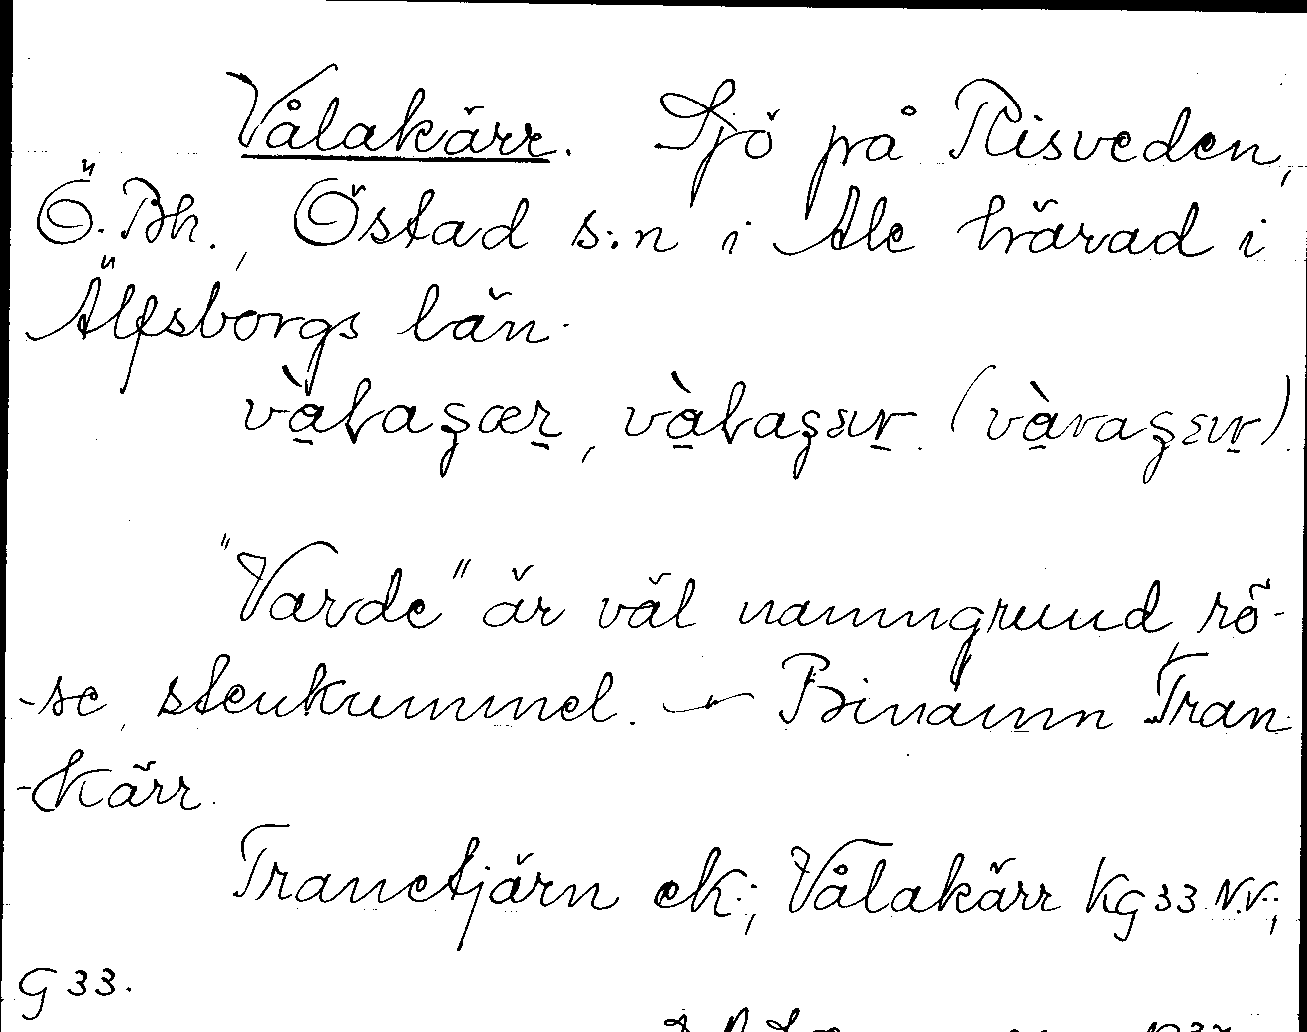 Vålakärr. Sjö på Risveden,
Ö. Bh., Östad s:n i Ale härad i
Älfsborgs län.
"Varde" är väl namngrund, rö-
-se, stenkummel. — Binamn Tran
-kärr.
Tranetjärn ek.; Vålakärr KG 33 N.V.;
G 33.